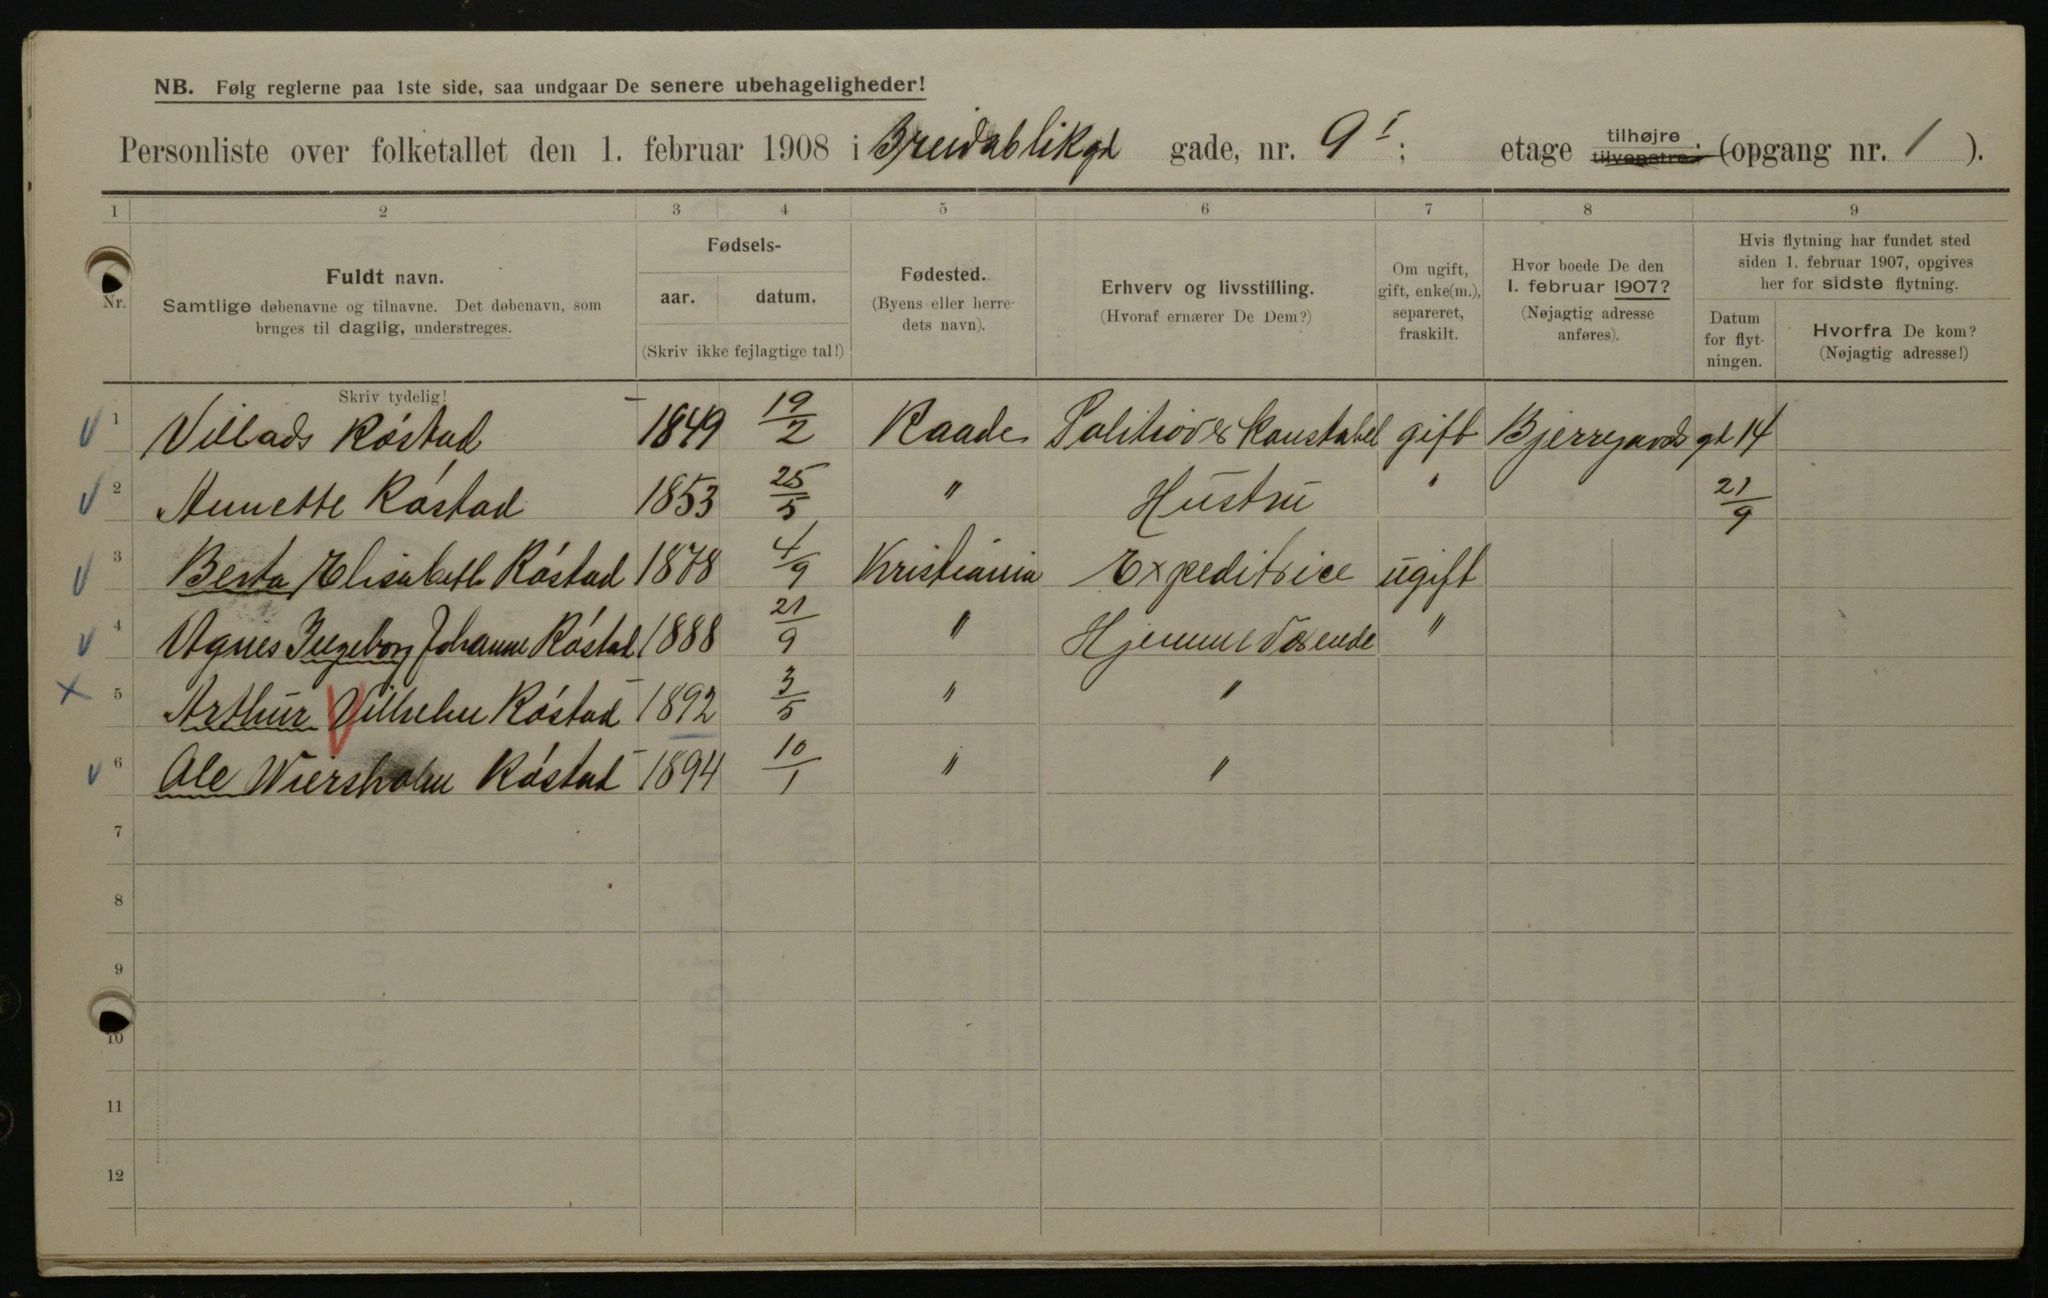 NB. Følg reglerne paa 1ste side, saa undgaar De senere ubehageligheder!
Personliste over folketallet den 1. februar 1908 i Breidablikgd gade, nr. 9 I; etage tilhøjre tilvenstre. (opgang nr. 1 ).
1 2 3 4 5 6 7 8 9
Nr.
Fuldt navn.
Samtlige døbenavne og tilnavne. Det døbenavn, som
bruges til daglig, understreges.
Skriv tydelig!
Fødsels-
aar. datum.
(Skriv ikke fejlagtige tal!)
Fødested.
(Byens eller herre-
dets navn).
Erhverv og livsstilling.
(Hvoraf ernærer De Dem?)
Om ugift,
gift, enke(m.),
separeret,
fraskilt.
Hvor boede De den
1. februar 1907?
(Nøjagtig adresse
anføres).
Hvis flytning har fundet sted
siden 1. februar 1907, opgives
her for sidste flytning.
Datum
for flyt-
ningen.
Hvorfra De kom?
(Nøjagtig adresse!)
1 Villads Róstad 1849 19/2 Raade konstabel gift gd 14
2 Annette Róstad 1853 25/5 " Hustru " 21/9
3 Berta Elisabeth Róstad 1878 4/9 Kristiania Expeditrice ugift
4 Agnes Ingeborg Johanne Róstad 1888 21/9 " Hjemmeværende "
5 Arthur Vilhelm Róstad 1892 3/5 " "
6 Ole Wiersholm Róstad 1894 10/1 " "
7
8
9
10
11
12